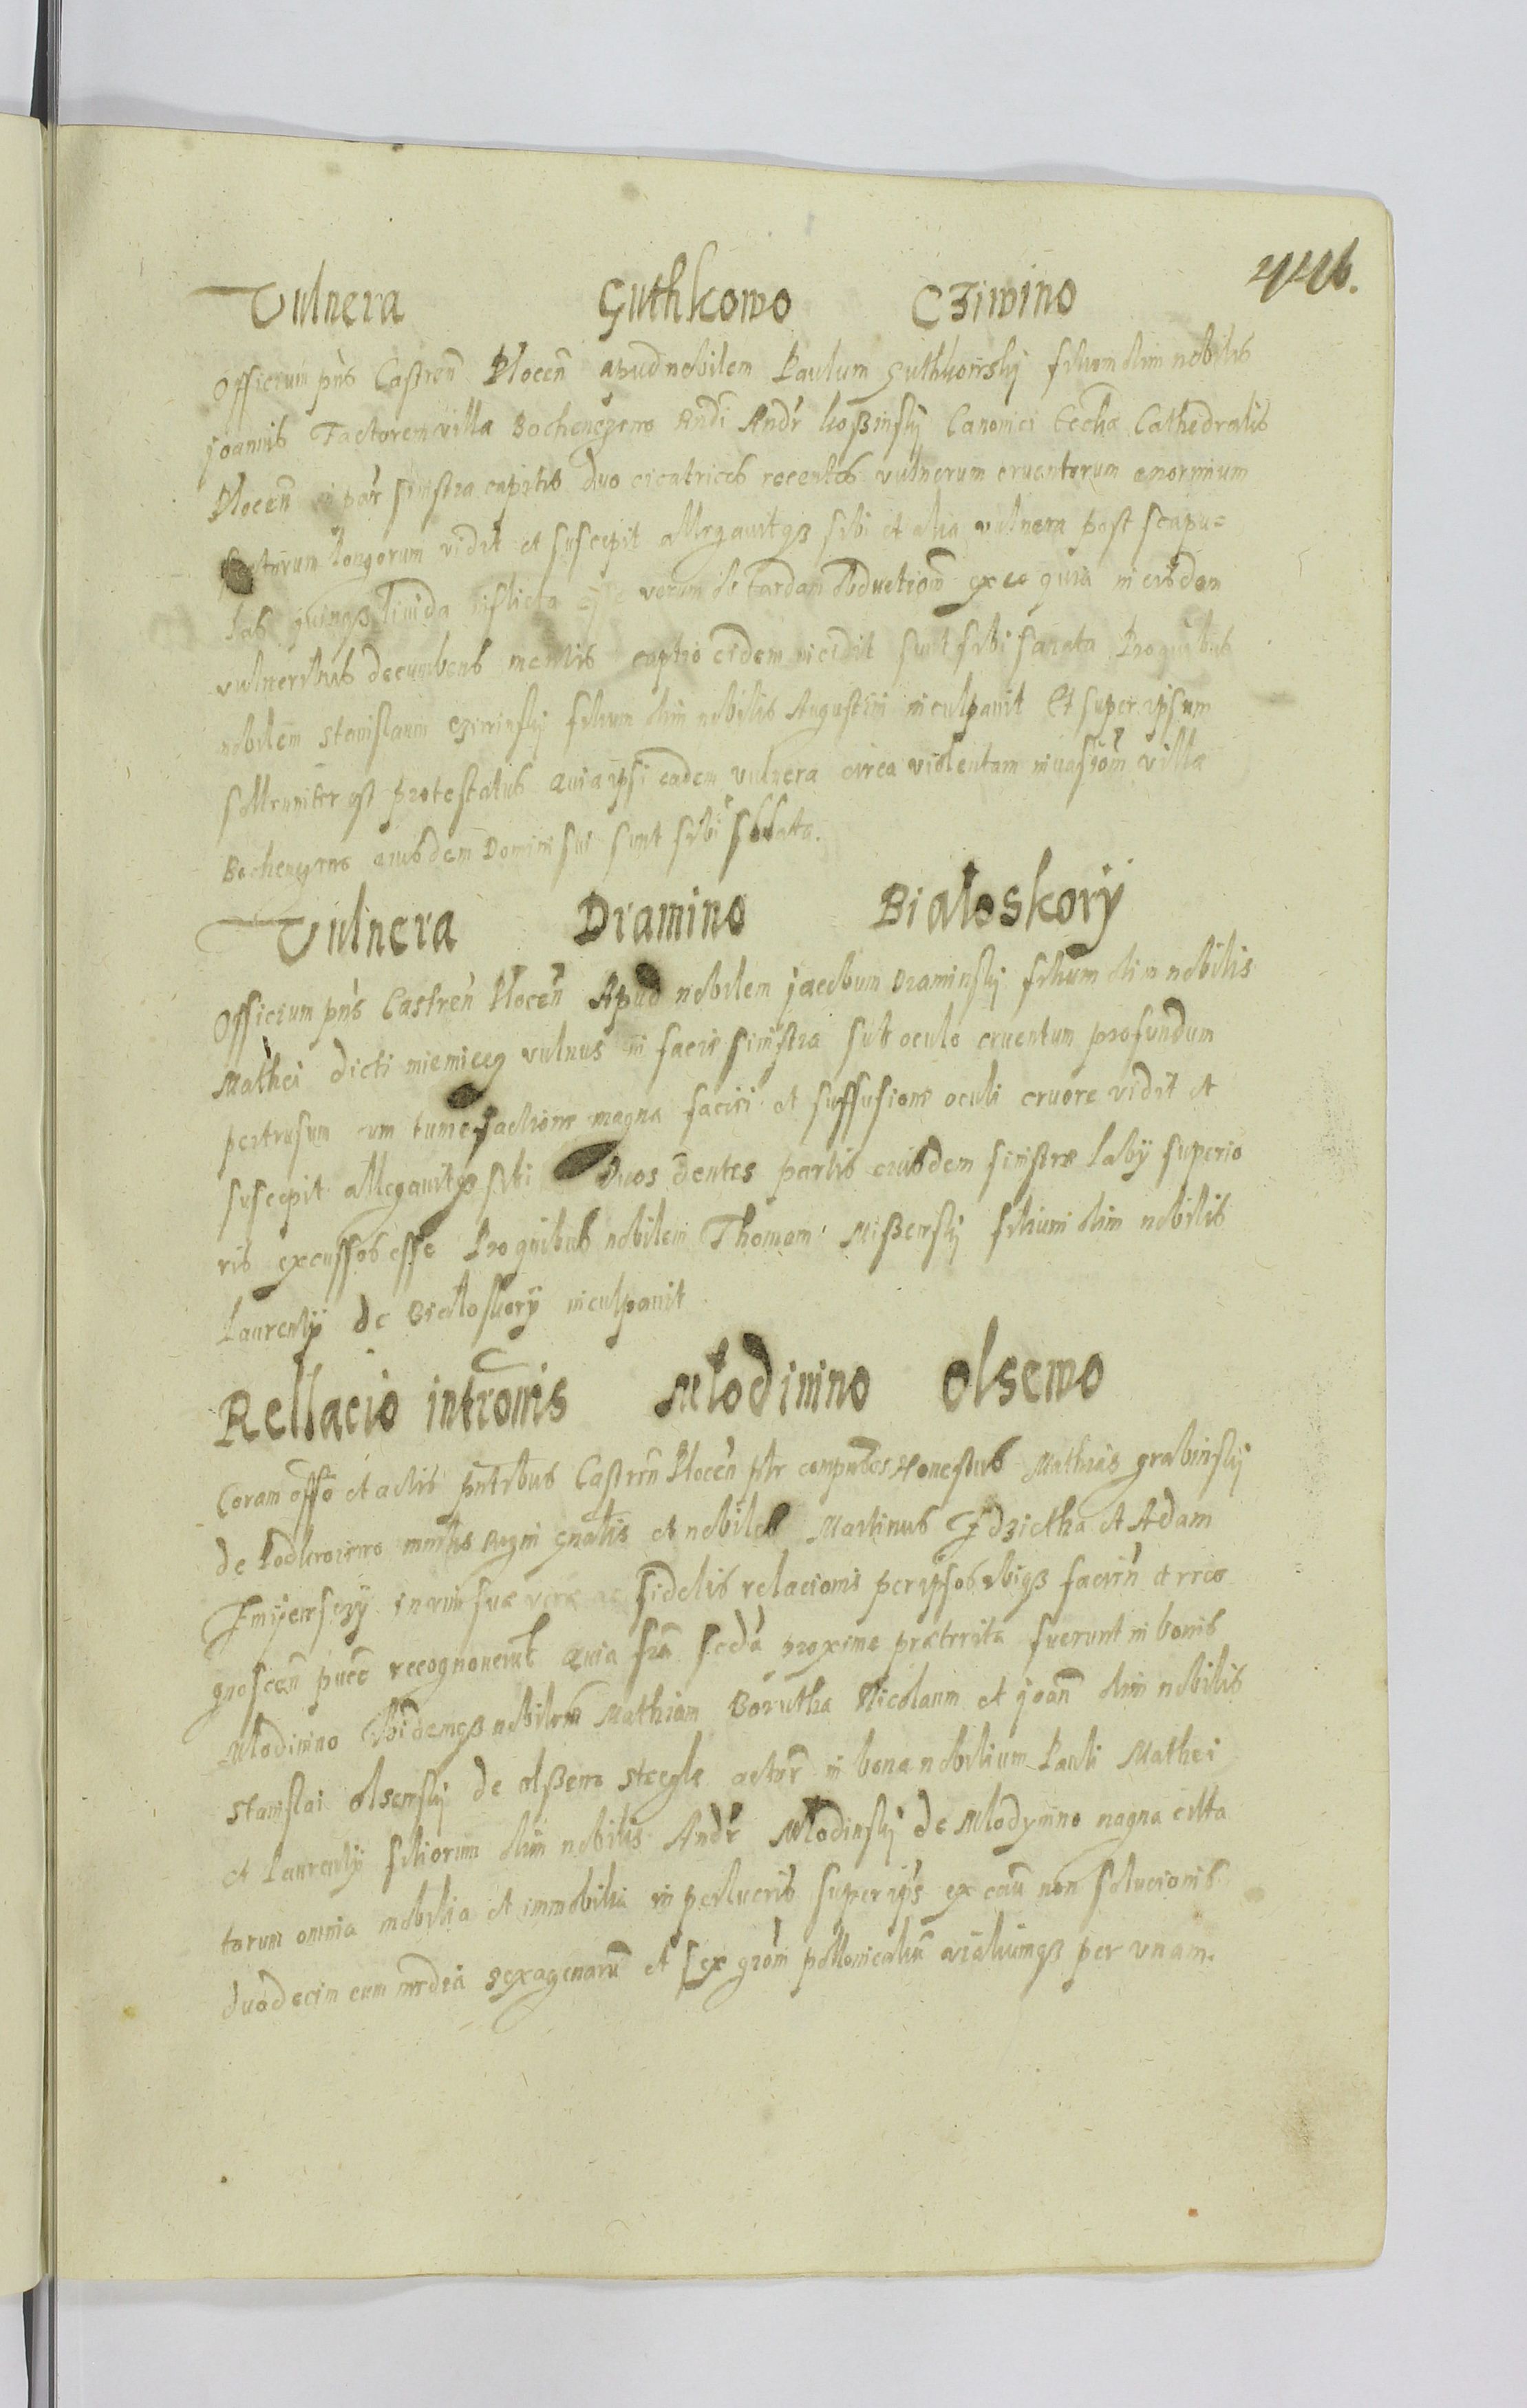 446.
Vulnera Guthkowo Cziwino
Officium pns Castren Plocen apud nobilem Paulum Guthkowskÿ filium olim nobilis
joannis Factorem villæ Bochenczewo Rndi Andr koßinskÿ Canonici Eccliæ Cathedralis
Plocen in par sinistra capitis duo cicatrices recentes vulnerum cruentorum enormium
longorum vidit et suscepit allegauitqß sibi et alia vulnera post scapu=
las liuida inflicta esse verum ob tardam obductiom ex eo quia in eisdem
vulneribus decumbens mentis captio eidem incidit sunt sibi sanata Pro quibus
nobilem Stanislaum cziwinskÿ filium olim nobilis Augustini inculpauit Et super ipsum
sollenniter est protestatus quia ipsi eadem vulnera circa violentam inuasiom villæ
Bochenczewo eiusdem Domini sui sunt sibi illata.
Vulnera Dramino Białoskorÿ
Officium pns Castren Plocen Apud nobilem jacobum Draminskÿ filium olim nobilis
Mathei dicti miemiecz vulnus in facie sinistra sub oculo cruentum profundum
pertrusum cum tumefactione magna faciei et suffusione oculi cruore vidit et
suscepit allegauitqß sibi Duos dentes partis eiusdem sinistræ labÿ superio
ris excussos esse Pro quibus nobilem Thomam Mißewskÿ filium olim nobilis
Laurentÿ de Białoskorÿ inculpauit
Rellacio intromis Młodinino Olsewo
Coram offo et actis pntibus Castren Plocen plr compntes Honestus Mathias grabinskÿ
de mnlis Regni gnalis et nobiles Martinus Jdzictha et Adam
in vim suæ veræ ac fidelis relacionis per ipsos vbiqß faciën et reco
gnoscen recognouerut Quia fra scda proxime præterita fuerunt in bonis
Młodinino Ibidemqß nobilem Mathiam Borutha Nicolaum et joan olim nobilis
Stanislai olsenskÿ de olßewo actor in bona nobilium Pauli Mathei
et Laurentÿ filiorum olim nobilis Andr Młodinskÿ de Młodynino magna
torum omnia mobilia et immobilia in perlucris super ips ex cau non solucionis
duodecim cum media sexagenaru et sex grom pollonicaliu aÿaliumqß per vnam.